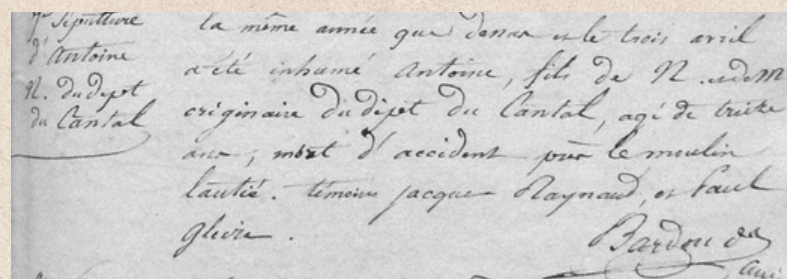 Sépulture
d'Antoine
N. du depot
du Cantal
la même année que dessus et le trois avril
a été inhumé Antoine, fils de N. et de N
originaire du dépot du Cantal, agé de treize
ans, mort d'accident près le moulin
lautié. témoins jacques Raynaud, et Paul
Bardou